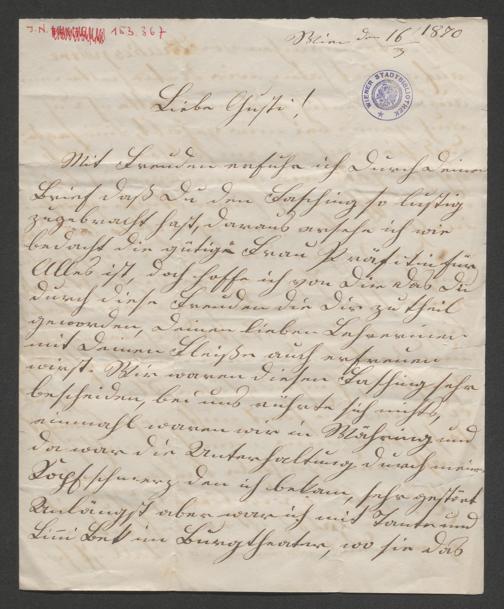 J.N. 163.367
Wien den 16/3 1870
WIENER STADTBIBLIOTHEK
Liebe Gusti!
Mit Freuden erfuhr ich durch Deinen
Brief daß Du den Fasching so lustig
zugebracht hast, daraus ersehe ich wie
bedacht die gütige Frau Präfectin für
Alles ist, doch hoffe ich von Dir das Du
durch diese Freuden die Dir zu theil
geworden, Deinen lieben Lehrerinen
mit Deinen Fleiße auch erfreuen
wirst. Wir waren diesen Fasching sehr
bescheiden, bei uns rührte sich nichts,
einmahl waren wir in Währing und
da war die Unterhaltung durch meinen
Kopfschmerz den ich bekam, sehr gestört
Unlängst aber war ich mit Tante und
Lini im Burgtheater, wo sie das